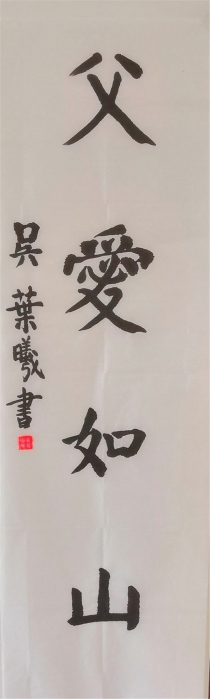 父愛如山
吴葉曦書